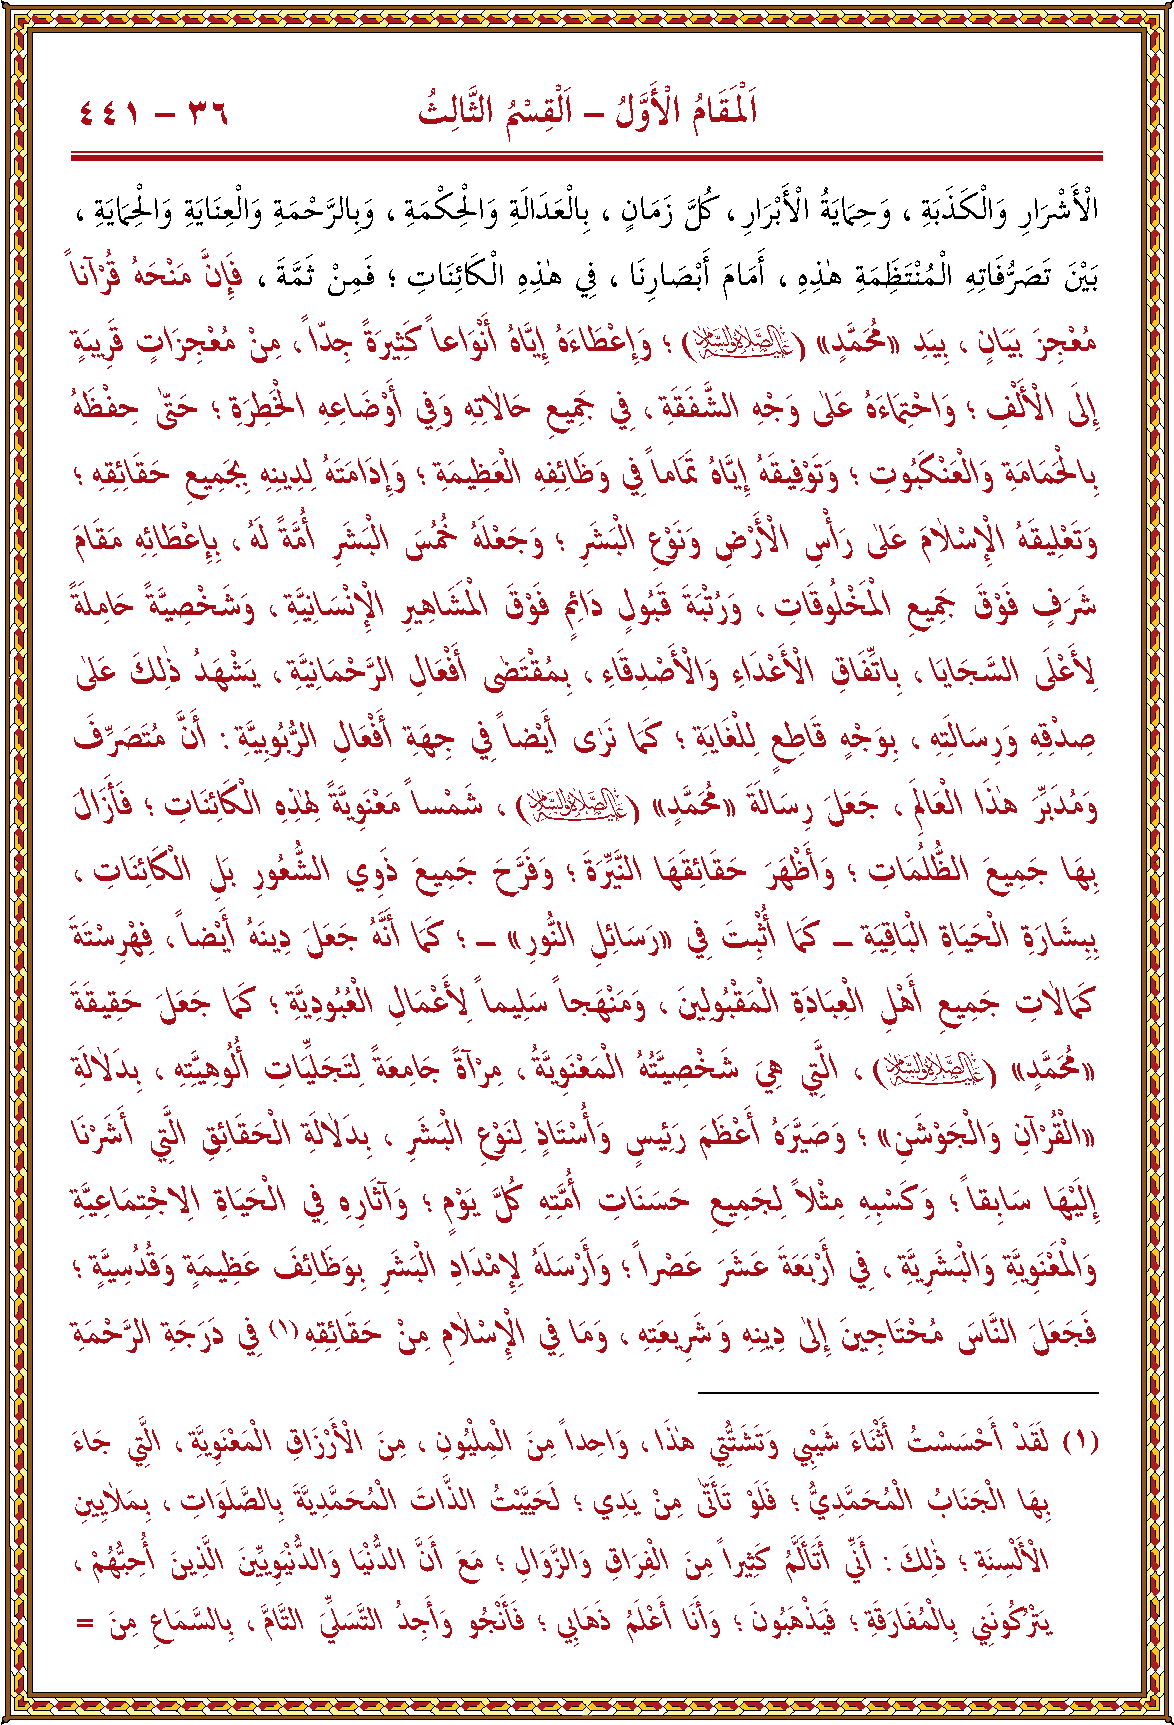 اَلْمَقَامُ الْأَوَّلُ – اَلْقِسْمُ الثَّالِثُ ٣٦ – ٤٤١
الْأَشْرَارِ وَالْكَذَبَةِ ، وَحِمَايَةُ الْأَبْرَارِ ، كُلَّ زَمَانٍ ، بِالْعَدَالَةِ وَالْحِكْمَةِ ، وَبِالرَّحْمَةِ وَالْعِنَايَةِ وَالْحِمَايَةِ ،
بَيْنَ تَصَرُّفَاتِهِ الْمُنْتَظِمَةِ هٰذِهِ ، أَمَامَ أَبْصَارِنَا ، فِي هٰذِهِ الْكَائِنَاتِ ؛ فَمِنْ ثَمَّةَ ، فَإِنَّ مَنْحَهُ قُرْآناً
مُعْجِزَ بَيَانٍ ، بِيَدِ «مُحَمَّدٍ» (عَلَيْهِ الصَّلَاةُ وَالسَّلَامُ) ؛ وَإِعْطَاءَهُ إِيَّاهُ أَنْوَاعاً كَثِيرَةً جِدّاً ، مِنْ مُعْجِزَاتٍ قَرِيبَةٍ
إِلَى الْأَلْفِ ؛ وَاحْتِمَاءَهُ عَلٰى وَجْهِ الشَّفَقَةِ ، فِي جَمِيعِ حَالاٰتِهِ وَفِي أَوْضَاعِهِ الْخَطِرَةِ ؛ حَتّٰى حِفْظَهُ
بِالْحَمَامَةِ وَالْعَنْكَبُوتِ ؛ وَتَوْفِيقَهُ إِيَّاهُ تَمَاماً فِي وَظَائِفِهِ الْعَظِيمَةِ ؛ وَإِدَامَتَهُ لِدِينِهِ بِجَمِيعِ حَقَائِقِهِ ؛
وَتَعْلِيقَهُ الْإِسْلاٰمَ عَلٰى رَأْسِ الْأَرْضِ وَنَوْعِ الْبَشَرِ ؛ وَجَعْلَهُ خُمُسَ الْبَشَرِ أُمَّةً لَهُ ، بِإِعْطَائِهِ مَقَامَ
شَرَفٍ فَوْقَ جَمِيعِ الْمَخْلُوقَاتِ ، وَرُتْبَةَ قَبُولٍ دَائِمٍ فَوْقَ الْمَشَاهِيرِ الْإِنْسَانِيَّةِ ، وَشَخْصِيَّةً حَامِلَةً
لِأَعْلَى السَّجَايَا ، بِاتِّفَاقِ الْأَعْدَاءِ وَالْأَصْدِقَاءِ ، بِمُقْتَضٰى أَفْعَالِ الرَّحْمَانِيَّةِ ، يَشْهَدُ ذٰلِكَ عَلٰى
صِدْقِهِ وَرِسَالَتِهِ ، بِوَجْهٍ قَاطِعٍ لِلْغَايَةِ ؛ كَمَا نَرٰى أَيْضاً فِي جِهَةِ أَفْعَالِ الرُّبُوبِيَّةِ : أَنَّ مُتَصَرِّفَ
وَمُدَبِّرَ هٰذَا الْعَالَمِ ، جَعَلَ رِسَالَةَ «مُحَمَّدٍ» (عَلَيْهِ الصَّلَاةُ وَالسَّلَامُ) ، شَمْساً مَعْنَوِيَّةً لِهٰذِهِ الْكَائِنَاتِ ؛ فَأَزَالَ
بِهَا جَمِيعَ الظُّلُمَاتِ ؛ وَأَظْهَرَ حَقَائِقَهَا النَّيِّرَةَ ؛ وَفَرَّحَ جَمِيعَ ذَوِي الشُّعُورِ بَلِ الْكَائِنَاتِ ،
بِبِشَارَةِ الْحَيَاةِ الْبَاقِيَةِ – كَمَا أُثْبِتَ فِي «رَسَائِلِ النُّورِ» – ؛ كَمَا أَنَّهُ جَعَلَ دِينَهُ أَيْضاً ، فِهْرِسْتَةَ
كَمَالاٰتِ جَمِيعِ أَهْلِ الْعِبَادَةِ الْمَقْبُولِينَ ، وَمَنْهَجاً سَلِيماً لِأَعْمَالِ الْعُبُودِيَّةِ ؛ كَمَا جَعَلَ حَقِيقَةَ
«مُحَمَّدٍ» (عَلَيْهِ الصَّلَاةُ وَالسَّلَامُ) ، الَّتِي هِيَ شَخْصِيَّتُهُ الْمَعْنَوِيَّةُ ، مِرْآةً جَامِعَةً لِتَجَلِّيَاتِ أُلُوهِيَّتِهِ ، بِدَلاٰلَةِ
«الْقُرْآنِ وَالْجَوْشَنِ» ؛ وَصَيَّرَهُ أَعْظَمَ رَئِيسٍ وَأُسْتَاذٍ لِنَوْعِ الْبَشَرِ ، بِدَلاٰلَةِ الْحَقَائِقِ الَّتِي أَشَرْنَا
إِلَيْهَا سَابِقاً ؛ وَكَسْبِهِ مِثْلاً لِجَمِيعِ حَسَنَاتِ أُمَّتِهِ كُلَّ يَوْمٍ ؛ وَآثَارِهِ فِي الْحَيَاةِ الاِجْتِمَاعِيَّةِ
وَالْمَعْنَوِيَّةِ وَالْبَشَرِيَّةِ ، فِي أَرْبَعَةَ عَشَرَ عَصْراً ؛ وَأَرْسَلَهُ لِإِمْدَادِ الْبَشَرِ بِوَظَائِفَ عَظِيمَةٍ وَقُدُسِيَّةٍ ؛
فَجَعَلَ النَّاسَ مُحْتَاجِينَ إِلٰى دِينِهِ وَشَرِيعَتِهِ ، وَمَا فِي الْإِسْلاٰمِ مِنْ حَقَائِقِهِ (١) فِي دَرَجَةِ الرَّحْمَةِ
(١) لَقَدْ أَحْسَسْتُ أَثْنَاءَ شَيْبِي وَتَشَتُّتِي هٰذَا ، وَاحِداً مِنَ الْمِلْيُونِ ، مِنَ الْأَرْزَاقِ الْمَعْنَوِيَّةِ ، الَّتِي جَاءَ
بِهَا الْجَنَابُ الْمُحَمَّدِيُّ ؛ فَلَوْ تَأَتّٰى مِنْ يَدِي ؛ لَحَيَّيْتُ الذَّاتَ الْمُحَمَّدِيَّةَ بِالصَّلَوَاتِ ، بِمَلاٰيِينِ
الْأَلْسِنَةِ ؛ ذٰلِكَ : أَنِّي أَتَأَلَّمُ كَثِيراً مِنَ الْفِرَاقِ وَالزَّوَالِ ؛ مَعَ أَنَّ الدُّنْيَا وَالدُّنْيَوِيِّينَ الَّذِينَ أُحِبُّهُمْ ،
يَتْرُكُونَنِي بِالْمُفَارَقَةِ ؛ فَيَذْهَبُونَ ؛ وَأَنَا أَعْلَمُ ذَهَابِي ؛ فَأَنْجُو وَأَجِدُ التَّسَلِّيَ التَّامَّ ، بِالسَّمَاعِ مِنَ =